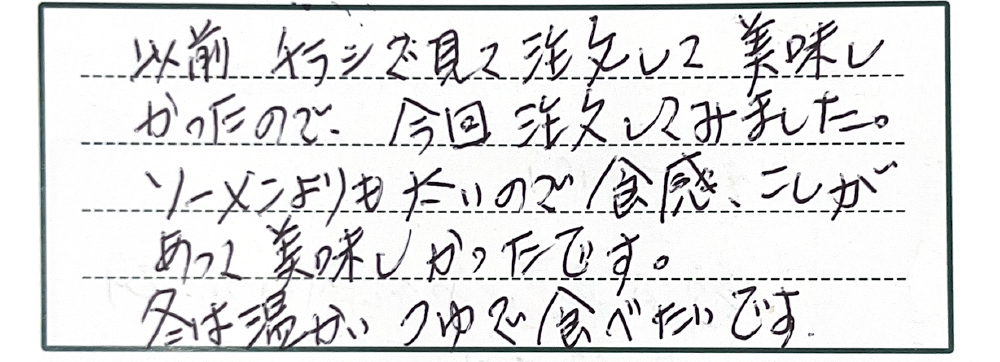 以前 チラシで見て注文して美味し
かったので、今回注文してみました。
ソーメンよりも太いので食感、こしが
あって美味しかったです。
冬は温かいつゆで食べたいです